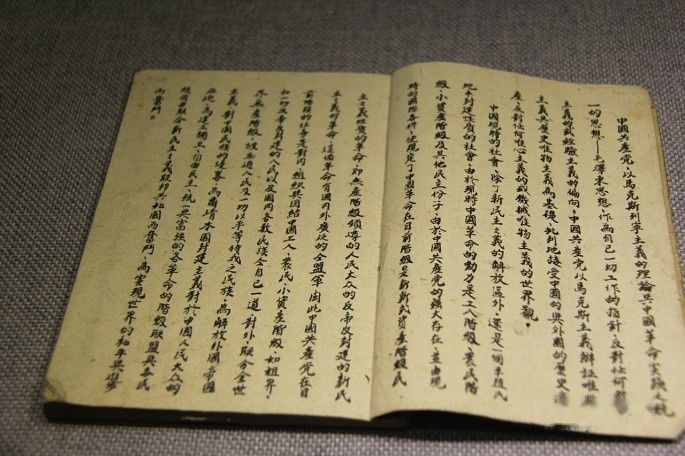 中國共產党,以馬克斯列寧主義的理論與中國革命實踐之統
一的思想——毛澤東思想,作為自己一切工作的指針,反對任何
主義的或經驗主義的偏向。中國共產党以馬克斯主義辯証唯
主義與歷史唯物主義為基礎,批判地接受中國的與外國的歷史
產,反對任何唯心主義的或機械唯物主義的世界觀。
中國現時的社會,除了新民主主義的解放區外,還是一個半殖民
地半封建性質的社會。由於現時中國革命的動力是工人階級、農民階
級、小資產階級及其他民主份子,由於中國共產党的強大存在,並由現
時的國際条件,便規定了中國革命在目前階級是新新式資產階級民
主主義性質的革命,即無產階級領導的人民大众的反帝反封建的新民
主主義的革命。這個革命有國内外廣泛的合盟軍。因此,中國共產党在目
前階段的任务是:對内,組织與团結中國工人、農民、小資產階級、知界
和一切反帝反封建的人民以及國内各少數民族與自己一道,對外,联合全世
界無產階級、被壓迫人民及一切以平等待我之民族,為解放外國帝國
主義對中國民族的侵畧,為肅清本國封建主義對於中國人民大众的
壓迫,為建立独立、自由、民主、統一與富强的各革命的階級联盟與各民
族自由联合新民主主義联邦共和國而奮鬥,為實現世界的和平與進步
而奮鬥。